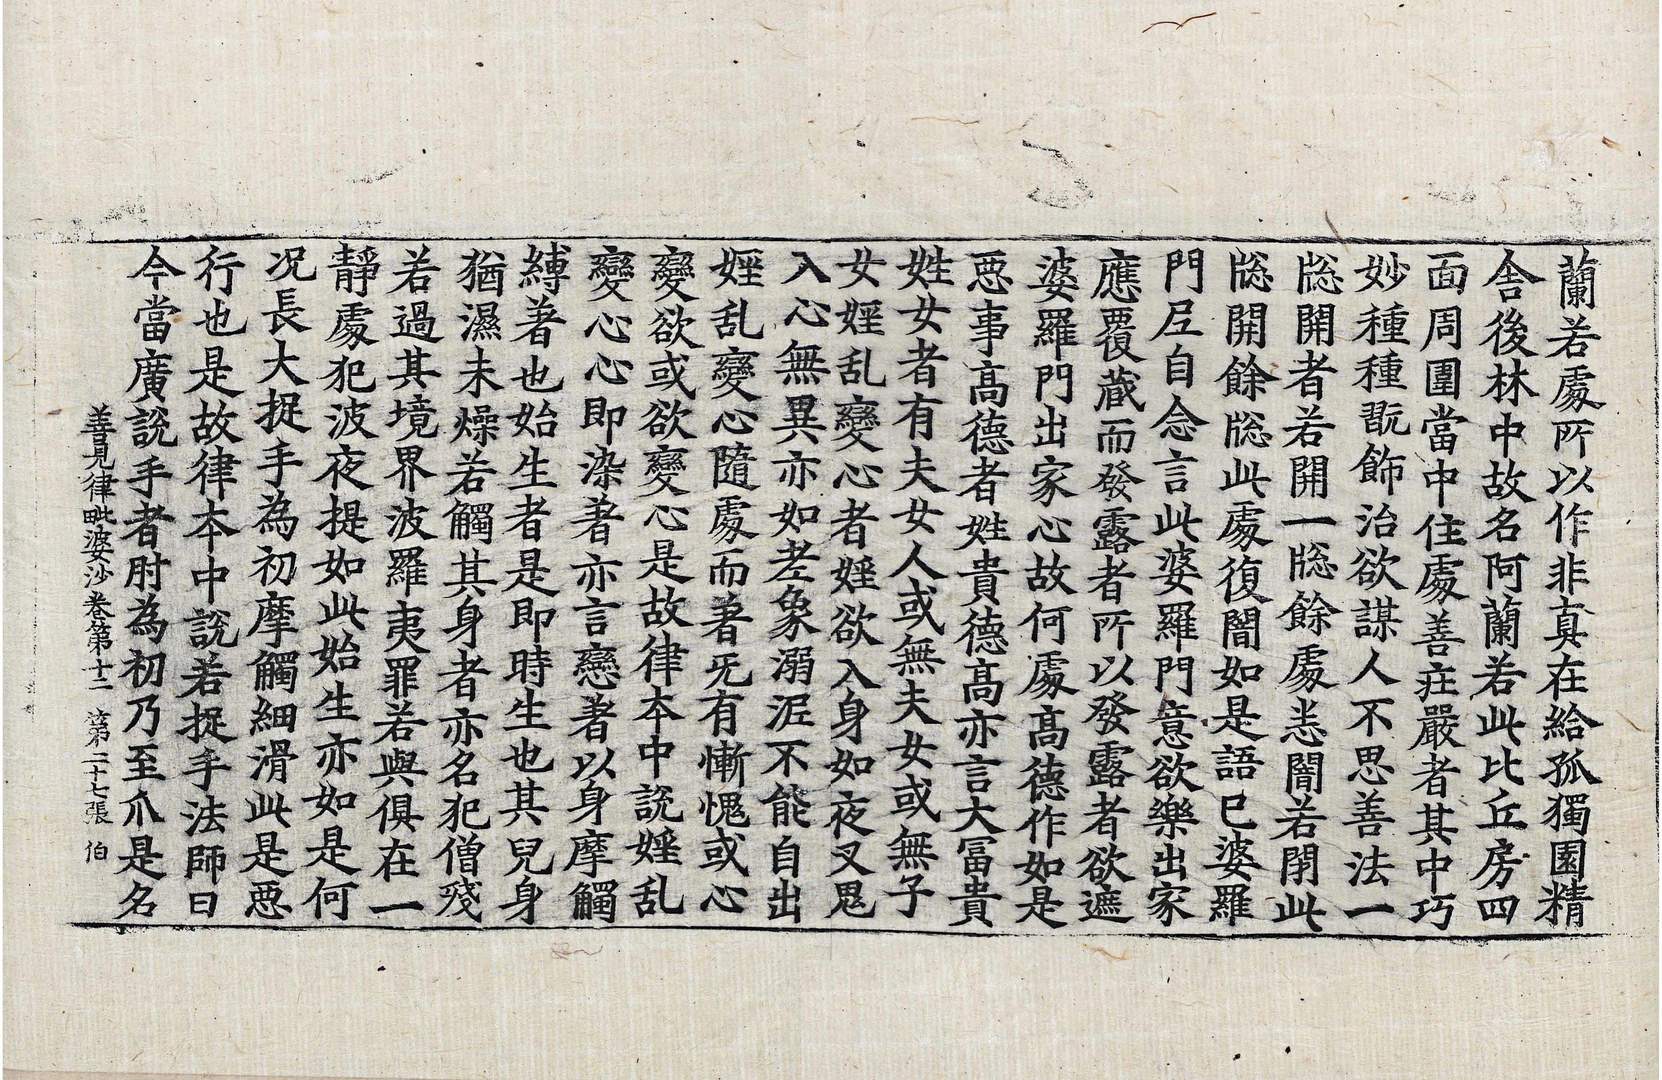 蘭若處所以作非真在給孤獨園精
舎後林中故名阿蘭若此比丘房四
面周圍當中住處善疘嚴者其中巧
妙種種翫飾治欲謀人不思善法一
牎開者若開一牎餘處恙闇若閇此
牎開餘牎此處復闇如是語已婆羅
門𡰱自念言此婆羅門意欲樂出家
應覆藏而發露者所以發露者欲遮
婆羅門出家心故何處髙德作如是
惡事髙德者姓貴德髙亦言大冨貴
姓女者有夫女人或無夫女或無子
女婬乱變心者婬欲入身如夜叉鬼
入心無異亦如老象溺泥不能自出
婬乱變心隨處而著旡有慚愧或心
變欲或欲變心是故律本中說婬乱
變心心即染著亦言戀著以身摩觸
縛著也始生者是即時生也其兒身
猶濕未燥若觸其身者亦名犯僧殘
若過其境界波羅夷罪若與俱在一
靜處犯波夜提如此始生亦如是何
况長大捉手為初摩觸細滑此是惡
行也是故律本中說若捉手法師曰
今當廣說手者肘為初乃至爪是名
善見律毗婆沙卷第十二 第二十七張 伯